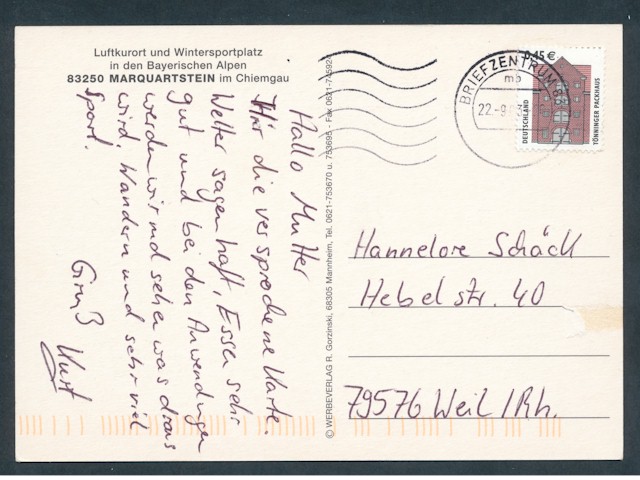 Luftkurort und Wintersportplatz
in den Bayerischen Alpen
83250 MARQUARTSTEIN im Chiemgau
Hallo Mutter
Hir die versprochene Karte.
Wetter sagenhaft, Essen sehr
gut und bei den Anwendungen
werden wir mal sehen was draus
wird. Wandern und sehr viel
Sport.
Gruß
Kurt
© WERBEVERLAG R. Gorzinski, 68305 Mannheim, Tel. 0621-753670 u. 753695 - Fax 0621-745924
BRIEFZENTRUM 83
mb
22.-9.
0,45 €
DEUTSCHLAND
TÖNNINGER PACKHAUS
Hannelore Schäck
Hebelstr. 40
79576 Weil/Rh.